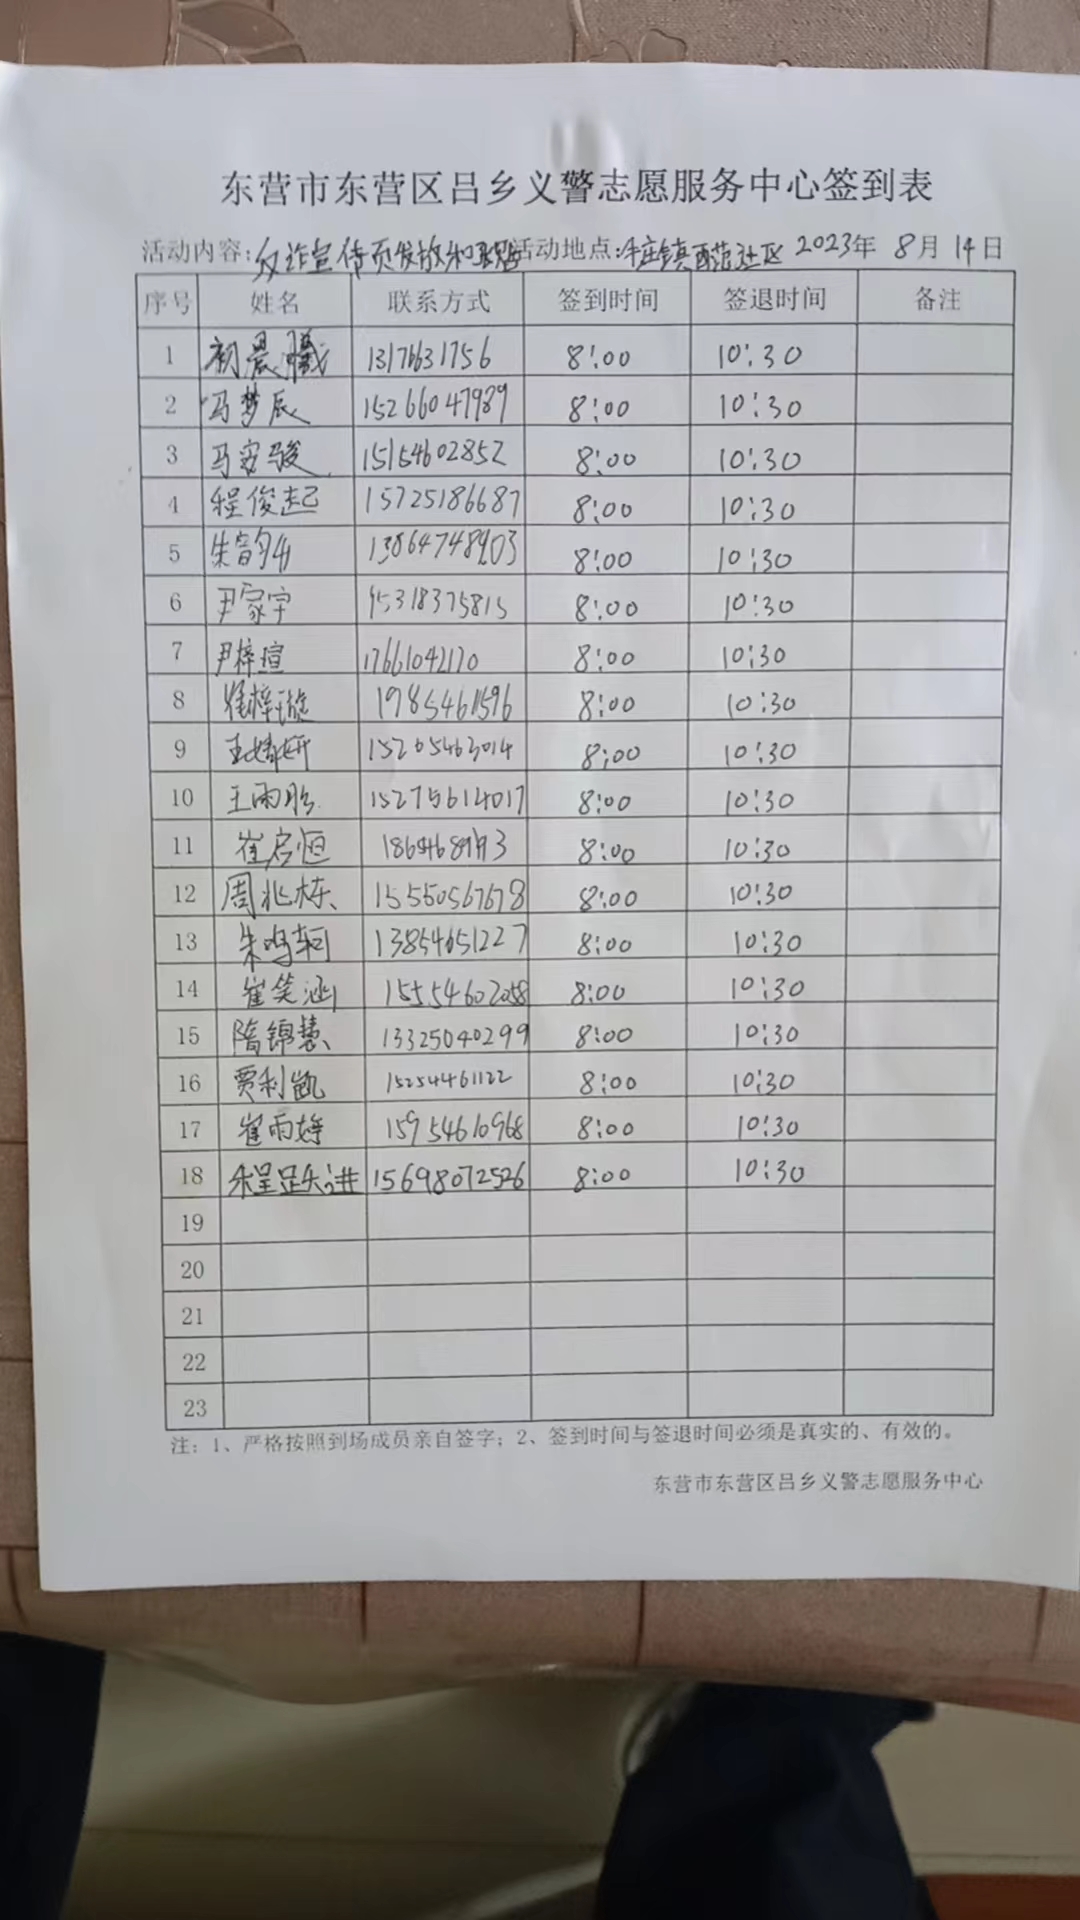 东营市东营区吕乡义警志愿服务中心签到表
活动内容:反诈宣传页发放和 活动地点: 镇 社区 2023年 8月 14日
序号 姓名 联系方式 签到时间 签退时间 备注
1 初晨曦 8:00 10:30
2 冯梦辰 15266047989 8:00 10:30
3 15154602852 8:00 10:30
4 程俊起 15725186687 8:00 10:30
5 8:00 10:30
6 尹家宇 15318375815 8:00 10:30
7 尹梓瑄 17661042170 8:00 10:30
8 8:00 10:30
9 王婧妍 15205463014 8:00 10:30
10 王雨彤 15275614017 8:00 10:30
11 崔启恒 8:00 10:30
12 周兆栋 15550567678 8:00 10:30
13 朱鸣轲 13854651227 8:00 10:30
14 崔笑涵 15554602058 8:00 10:30
15 隋锦慧 13325040299 8:00 10:30
16 贾利凯 15254461122 8:00 10:30
17 崔雨婷 15954610968 8:00 10:30
18 15698072526 8:00 10:30
19
20
21
22
23
注：1、严格按照到场成员亲自签字；2、签到时间与签退时间必须是真实的、有效的。
东营市东营区吕乡义警志愿服务中心